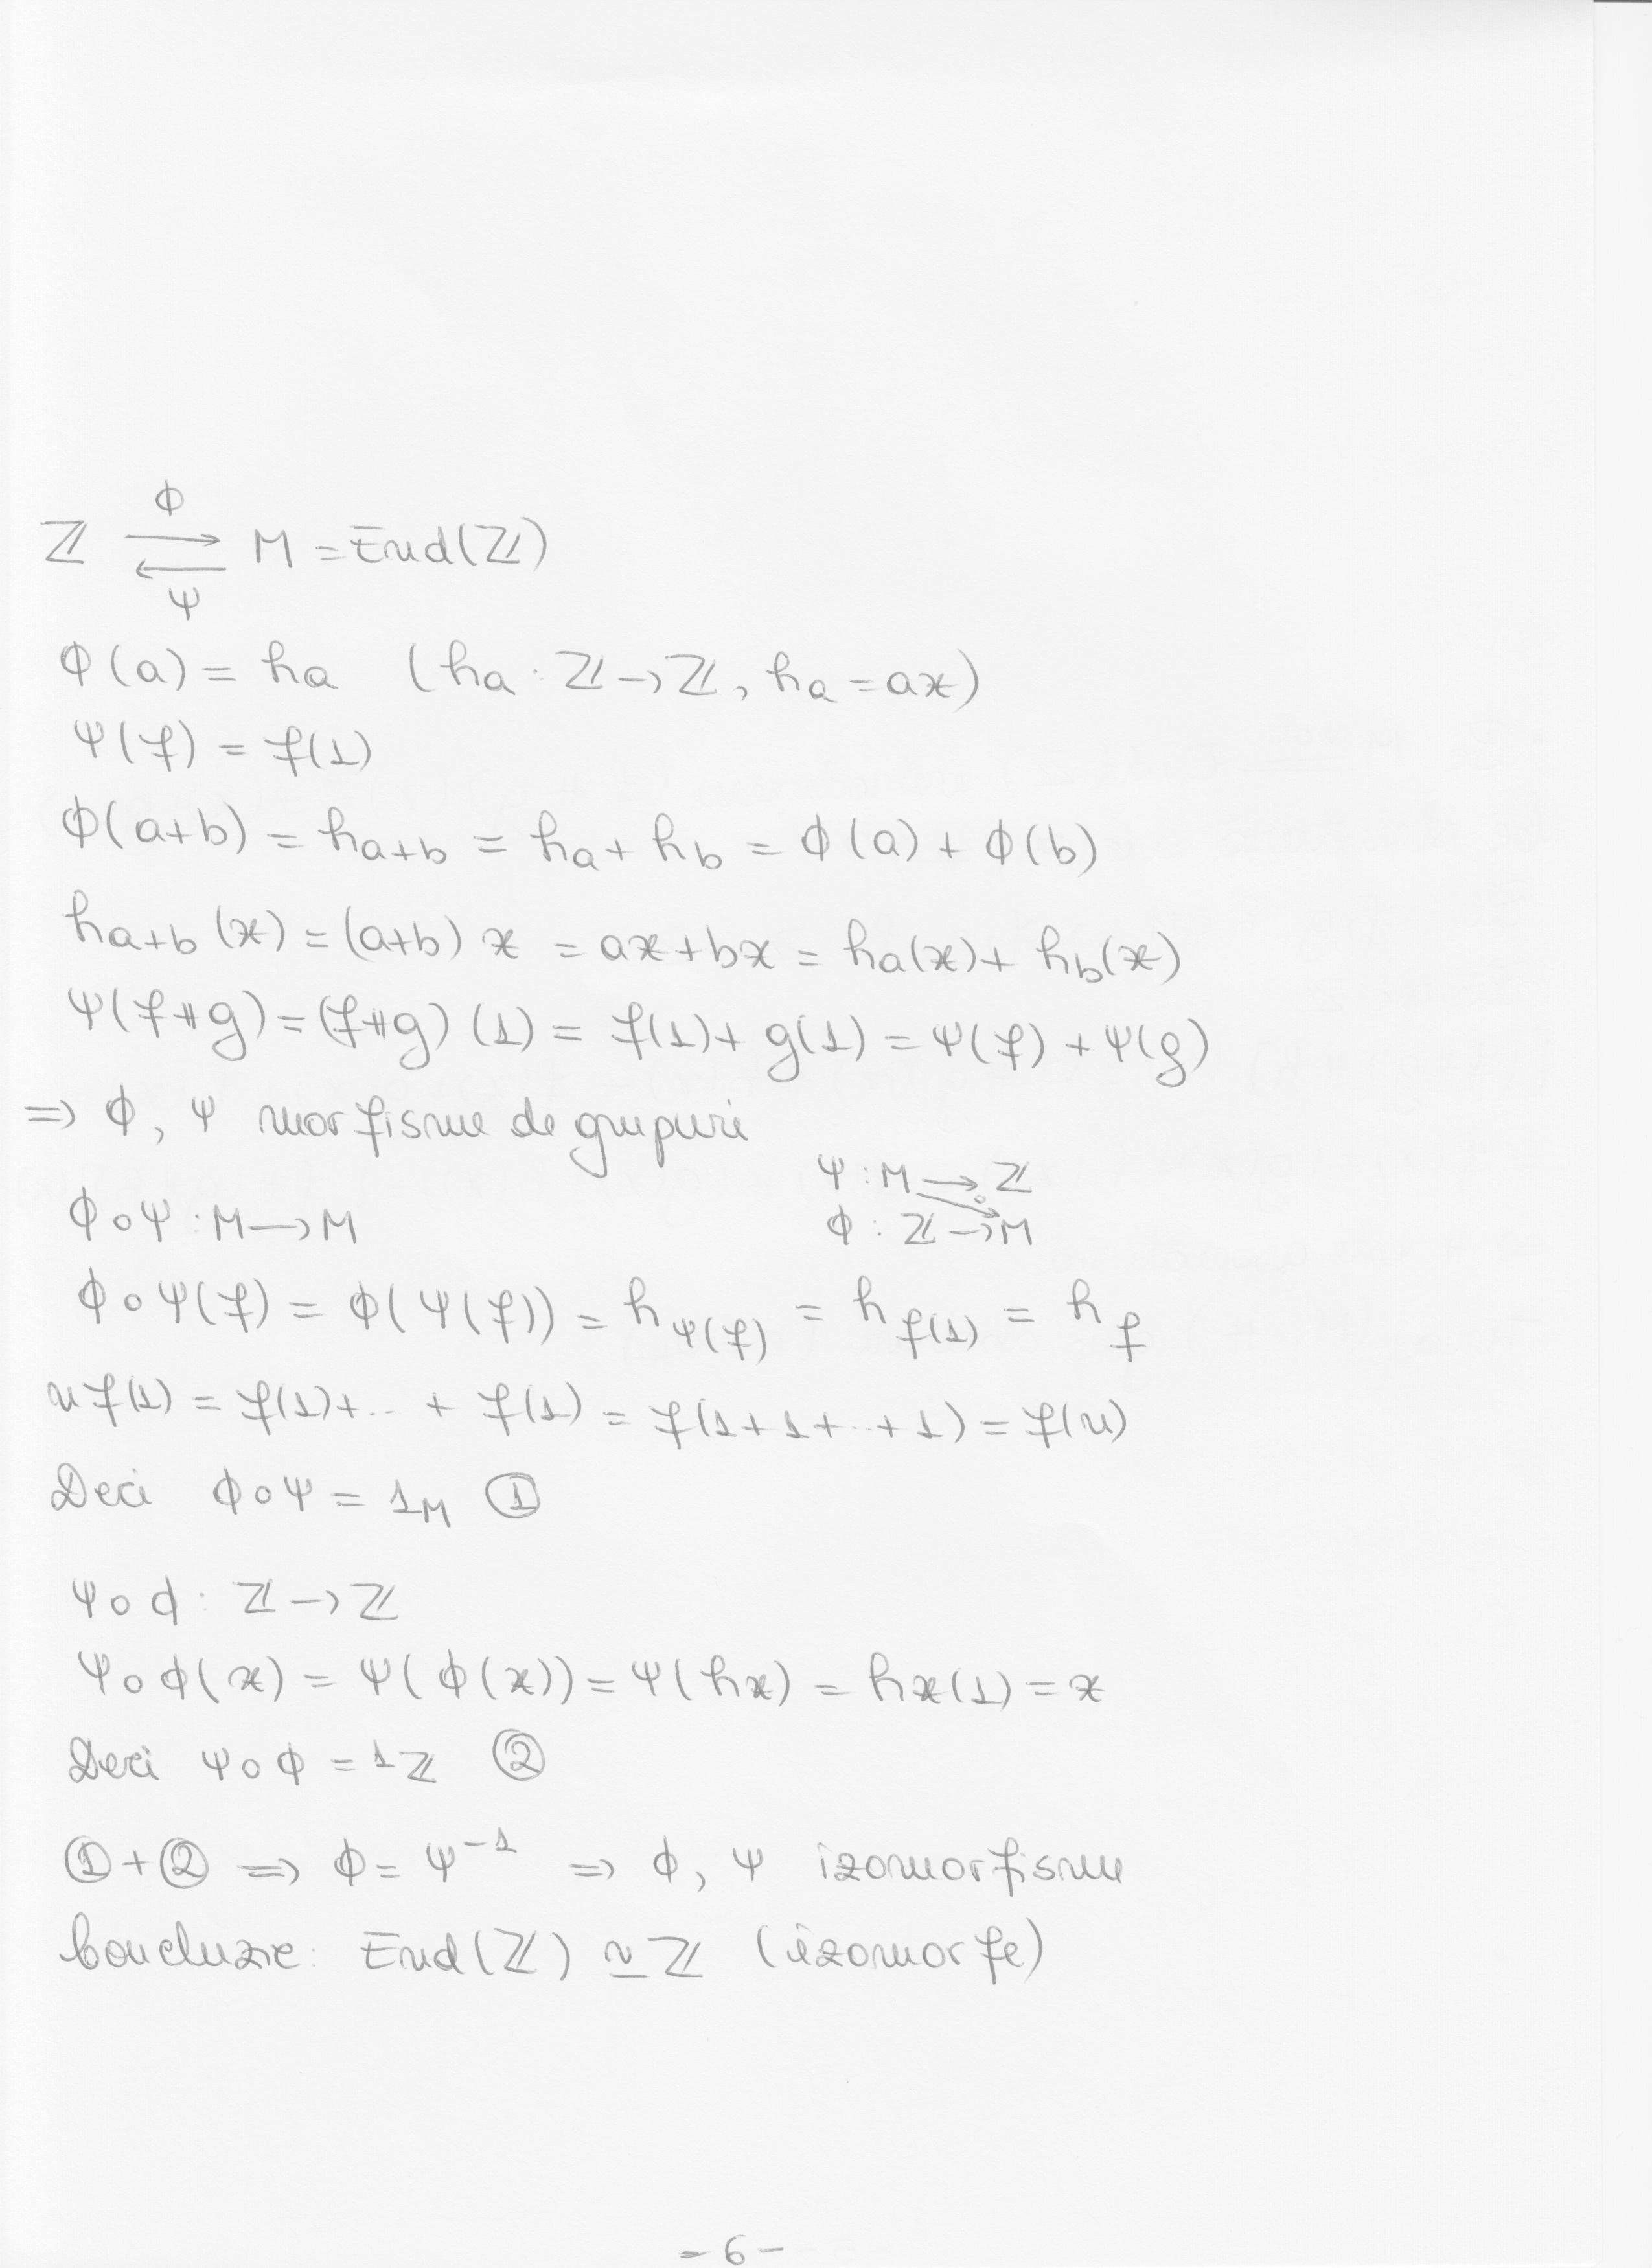 ϕ
ℤ ⇄ M = End(ℤ)
ψ
ϕ(a) = hₐ (hₐ : ℤ → ℤ, hₐ = ax)
ψ(f) = f(1)
ϕ(a+b) = h_{a+b} = h_a + h_b = ϕ(a) + ϕ(b)
h_{a+b}(x) = (a+b) x = ax + bx = h_a(x) + h_b(x)
ψ(f+g) = (f+g)(1) = f(1) + g(1) = ψ(f) + ψ(g)
⇒ ϕ, ψ morfisme de grupuri
ψ : M → ℤ
ϕ∘ψ : M → M
ϕ : ℤ → M
ϕ∘ψ(f) = ϕ(ψ(f)) = h_{ψ(f)} = h_{f(1)} = h_f
n f(1) = f(1) + .. + f(1) = f(1+1+..+1) = f(n)
Deci ϕ∘ψ = 1_M ①
ψ∘ϕ : ℤ → ℤ
ψ∘ϕ(x) = ψ(ϕ(x)) = ψ(h_x) = h_x(1) = x
Deci ψ∘ϕ = 1_ℤ ②
① + ② ⇒ ϕ = ψ⁻¹ ⇒ ϕ, ψ izomorfisme
Concluzie: End(ℤ) ≃ ℤ (izomorfe)
- 6 -